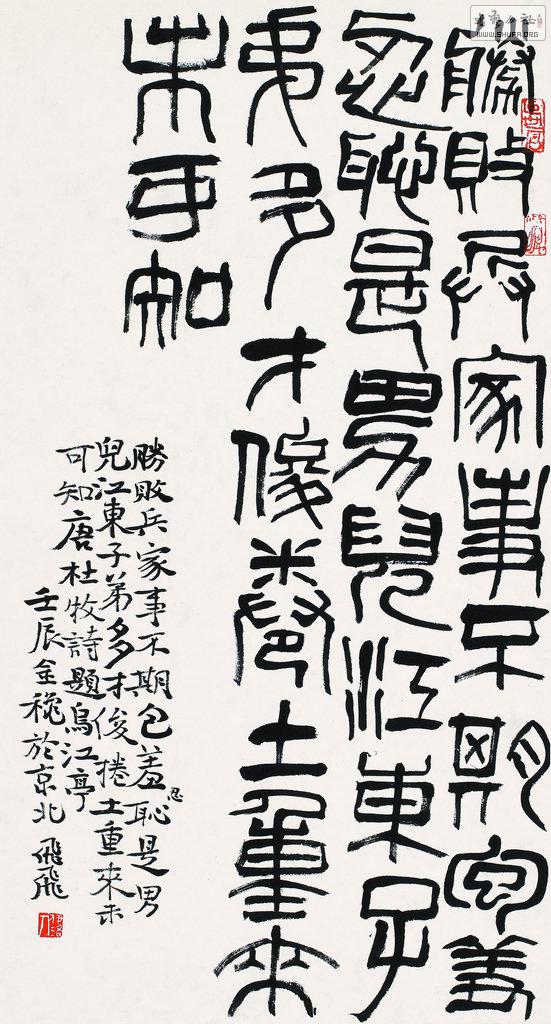 勝敗兵家事不期包羞
忍恥是男兒江東子
弟多才俊卷土重來
未可知
勝敗兵家事不期包羞忍恥是男
兒江東子弟多才俊捲土重來未
可知唐杜牧詩題烏江亭
壬辰金秋於京北 飛飛
WWW.SHUFA.ORG